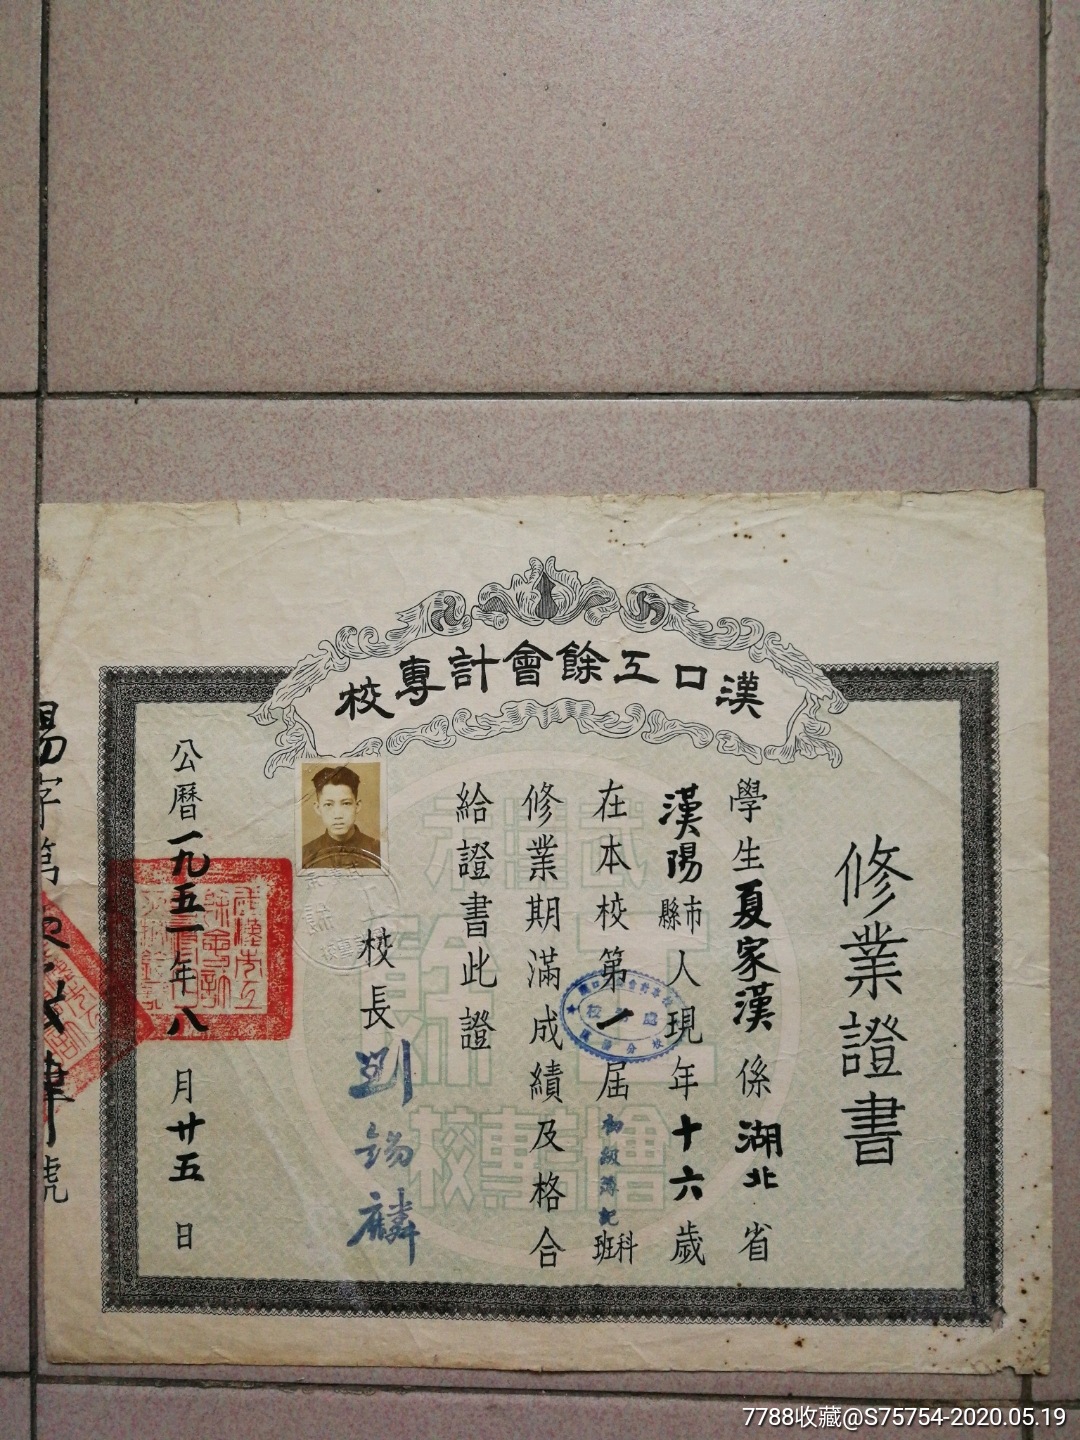 漢口工餘會計專校
修業證書
學生夏家漢係湖北省
漢陽市縣人現年十六歲
在本校第一屆初級簿記科班
修業期滿成績及格合
給證書此證
校長劉錫麟
公曆一九五一年八月廿五日
陽字第
號
武漢市工餘會計專校
7788收藏@S75754-2020.05.19